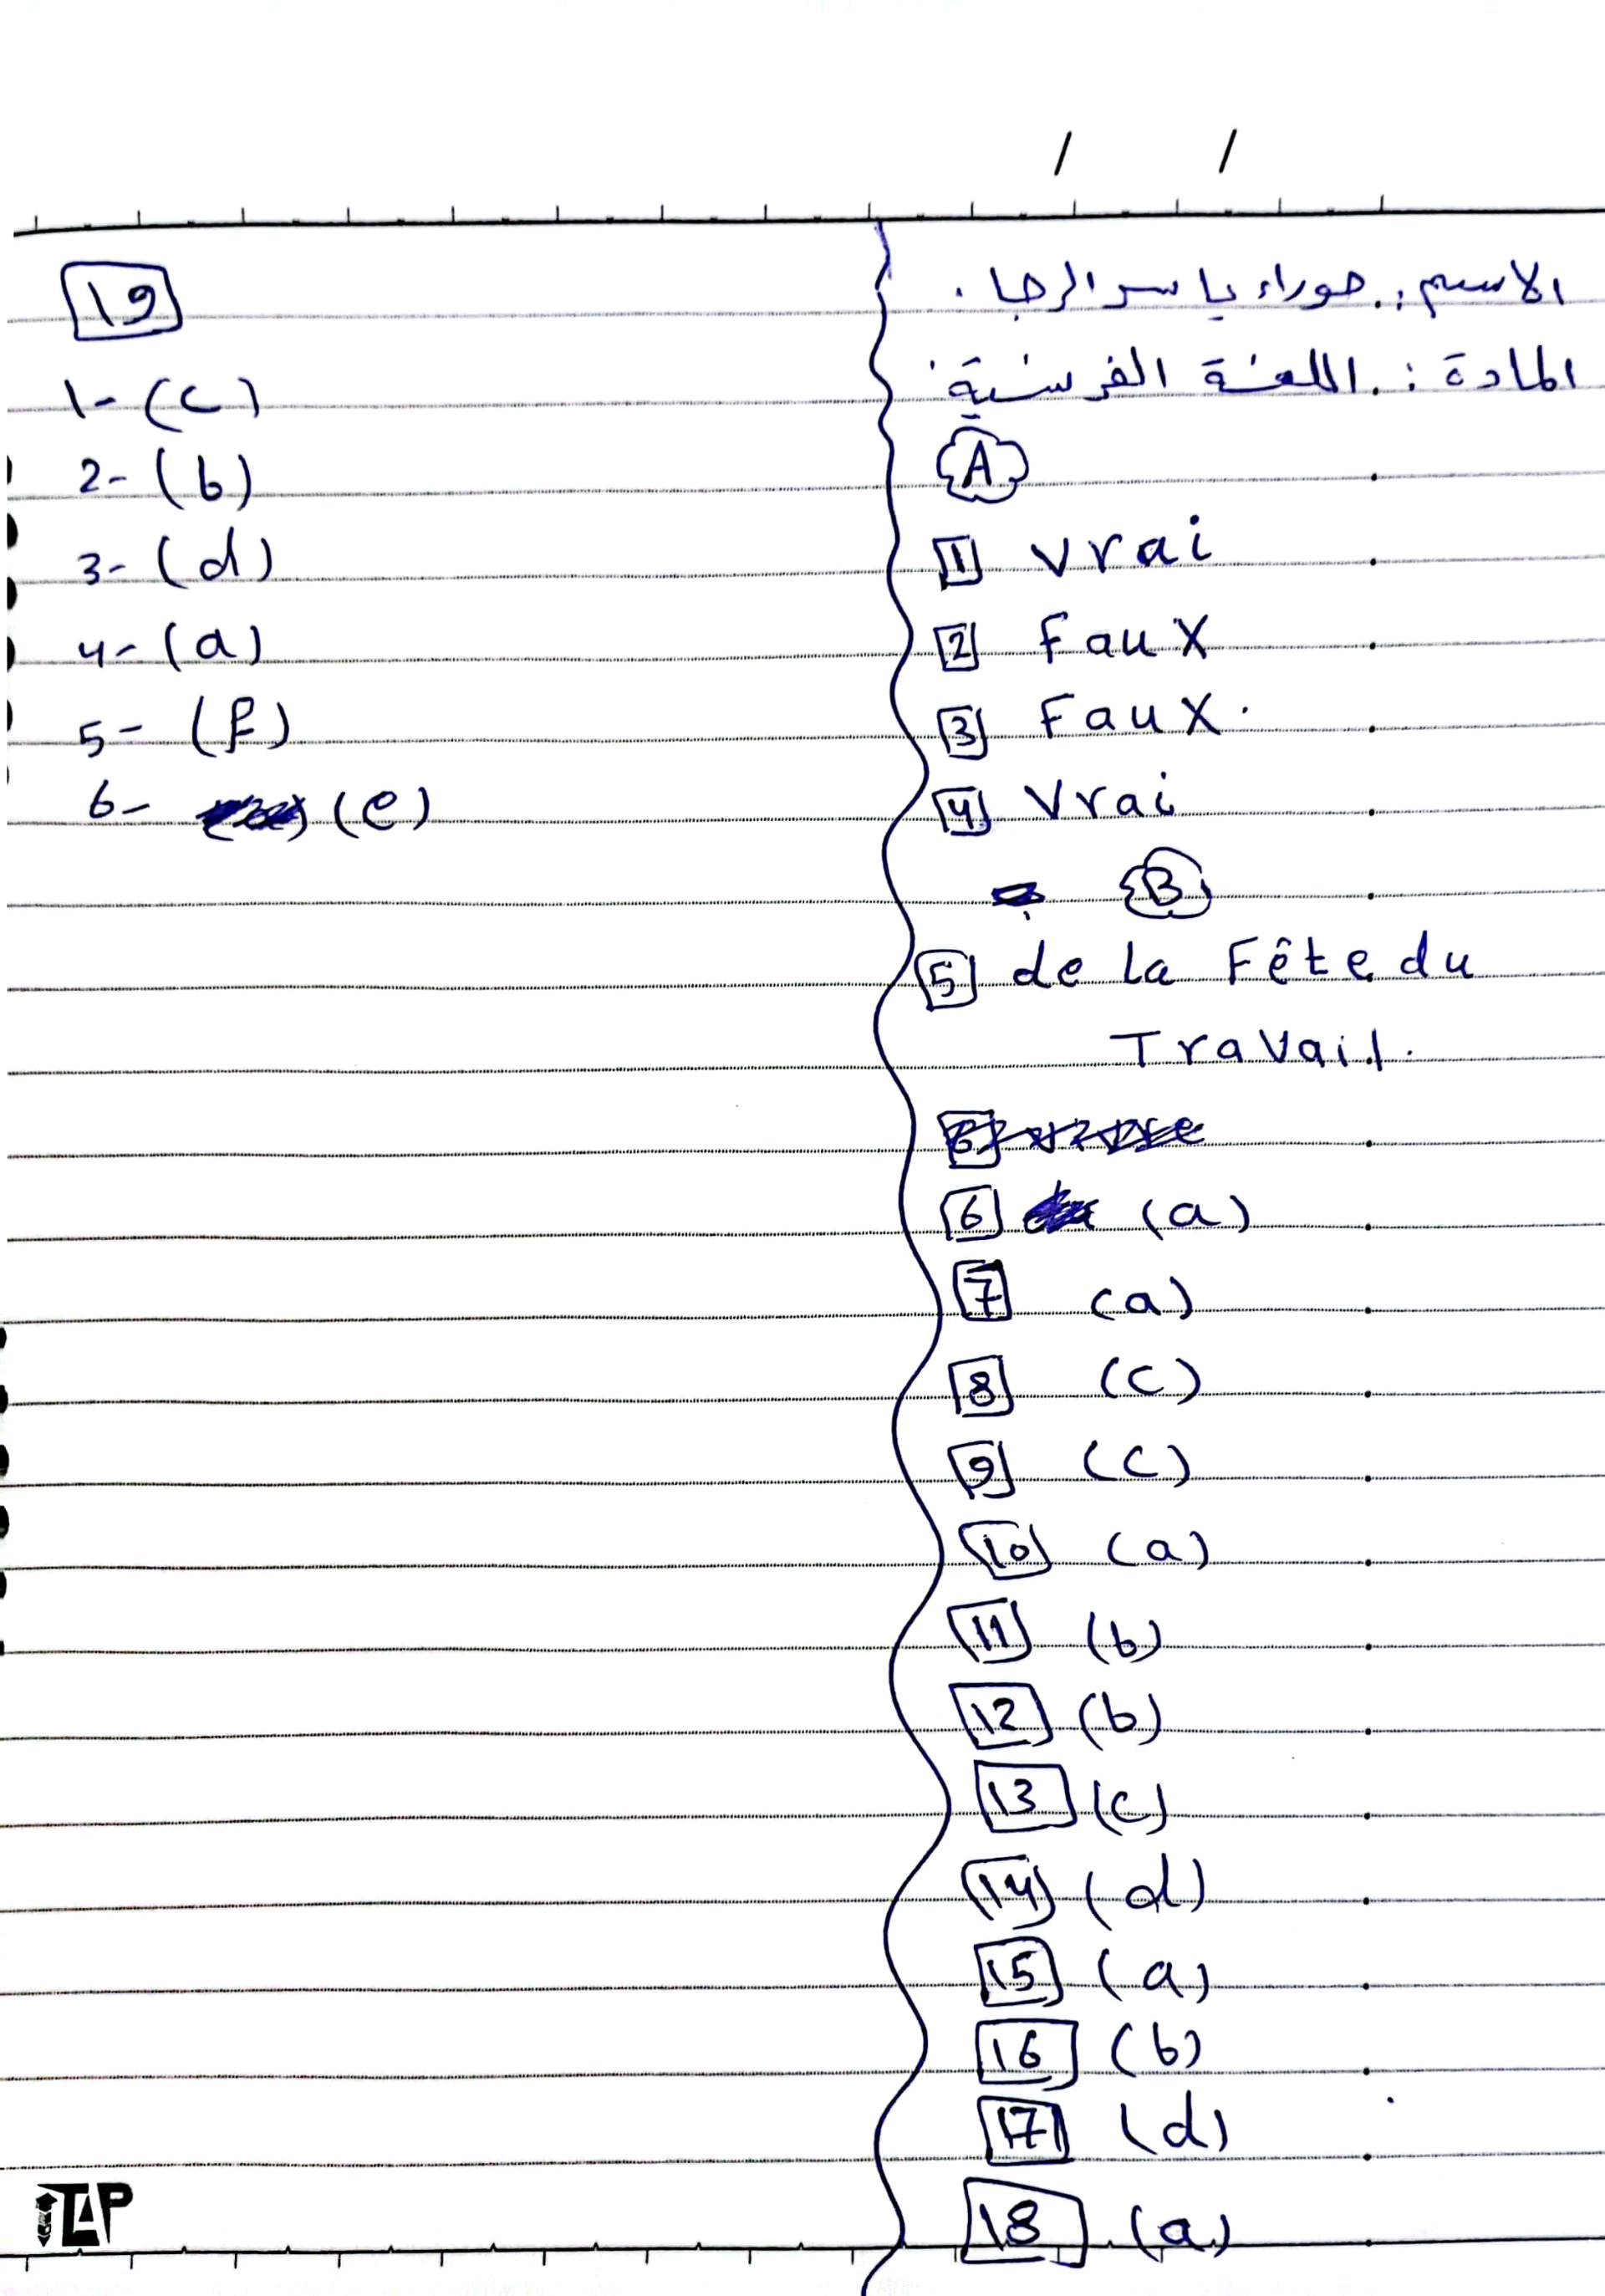 / /
الاسم: حوراء ياسر الرجا.
المادة: اللغة الفرنسية.
A
1 Vrai
2 Faux
3 Faux.
4 Vrai
B
5 de la Fête du
Travail.
6 (a)
7 (a)
8 (c)
9 (c)
10 (a)
11 (b)
12 (b)
13 (c)
14 (d)
15 (a)
16 (b)
17 (d)
18 (a)
19
1- (c)
2- (b)
3- (d)
4- (a)
5- (f)
6- (e)
TAP